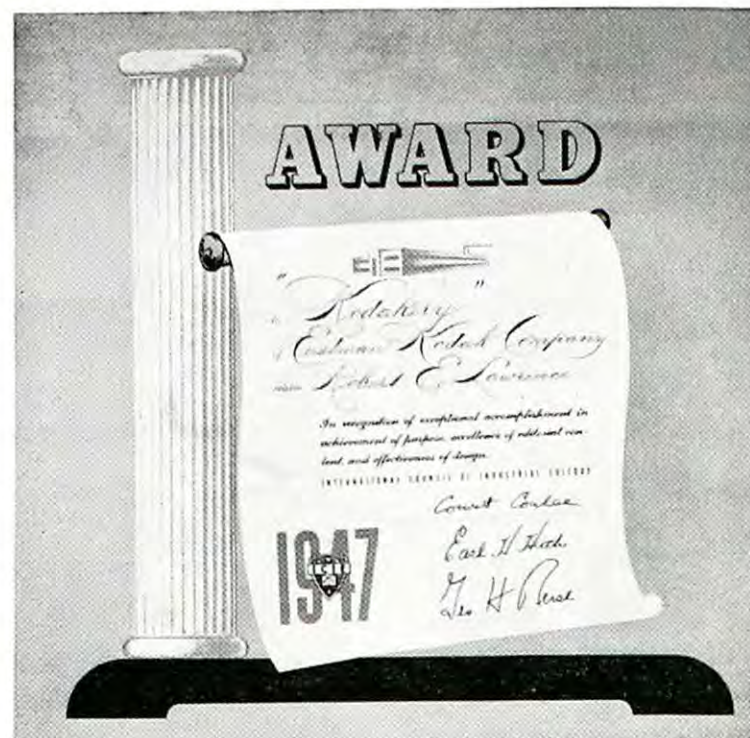 AWARD
"Kodakery"
of Eastman Kodak Company
Robert E. Lawrence
In recognition of exceptional accomplishment in
achievement of purpose, excellence of editorial con-
tent, and effectiveness of design.
INTERNATIONAL COUNCIL OF INDUSTRIAL EDITORS
1947
Earl H
Geo H